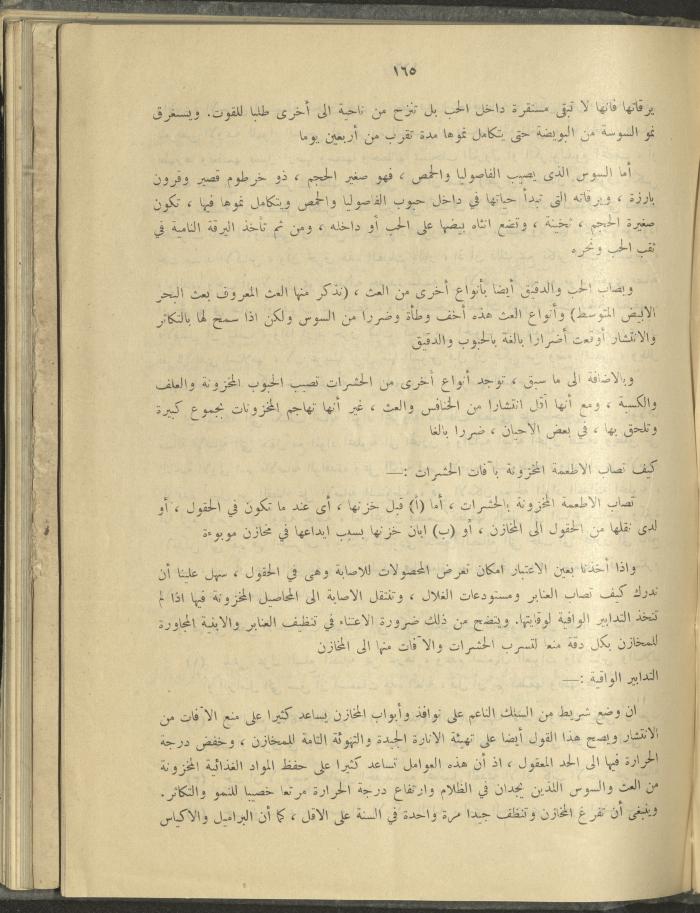 ١٦٥
يرقاتها فانها لا تبقى مستقرة داخل الحب بل تنزح من ناحية الى أخرى طلبا للقوت. ويستغرق
نمو السوسة من البويضة حتى يتكامل نموها مدة تقرب من أربعين يوما
أما السوس الذى يصيب الفاصوليا والحمص ، فهو صغير الحجم ، ذو خرطوم قصير وقرون
بارزة ، ويرقاته التى تبدأ حياتها في داخل حبوب الفاصوليا والحمص ويتكامل نموها فيها ، تكون
صغيرة الحجم ، ثخينة ، وتضع انثاه بيضها على الحب أو داخله ، ومن ثم تأخذ اليرقة النامية في
ثقب الحب ونخره
ويصاب الحب والدقيق أيضا بأنواع أخرى من العث ، (نذكر منها العث المعروف بعث البحر
الابيض المتوسط) وأنواع العث هذه أخف وطأة وضررا من السوس ولكن اذا سمح لها بالتكاثر
والانتشار أوقعت أضرارا بالغة بالحبوب والدقيق
وبالاضافة الى ما سبق ، توجد أنواع أخرى من الحشرات تصيب الحبوب المخزونة والعلف
والكسبة ، ومع أنها أقل انتشارا من الخنافس والعث ، غير أنها تهاجم المخزونات بجموع كبيرة
وتلحق بها ، في بعض الاحيان ، ضررا بالغا
كيف تصاب الاطعمة المخزونة بآفات الحشرات :—
تصاب الاطعمة المخزونة بالحشرات ، أما (أ) قبل خزنها ، أى عند ما تكون في الحقول ، أو
لدى نقلها من الحقول الى المخازن ، أو (ب) ابان خزنها بسبب ايداعها في مخازن موبوءة
واذا أخذنا بعين الاعتبار امكان تعرض المحصولات للاصابة وهى في الحقول ، سهل علينا أن
ندرك كيف تصاب العنابر ومستودعات الغلال ، وتنتقل الاصابة الى المحاصيل المخزونة فيها اذا لم
تتخذ التدابير الواقية لوقايتها. ويتضح من ذلك ضرورة الاعتناء في تنظيف العنابر والابنية المجاورة
للمخازن بكل دقة منعا لتسرب الحشرات والآفات منها الى المخازن
التدابير الواقية :—
ان وضع شريط من السلك الناعم على نوافذ وأبواب المخازن يساعد كثيرا على منع الآفات من
الانتشار ويصح هذا القول أيضا على تهيئة الانارة الجيدة والتهوئة التامة للمخازن ، وخفض درجة
الحرارة فيها الى الحد المعقول ، اذ أن هذه العوامل تساعد كثيرا على حفظ المواد الغذائية المخزونة
من العث والسوس اللذين يجدان في الظلام وارتفاع درجة الحرارة مرتعا خصيبا للنمو والتكاثر.
وينبغى أن تفرغ المخازن وتنظف جيدا مرة واحدة في السنة على الاقل ، كما أن البراميل والاكياس